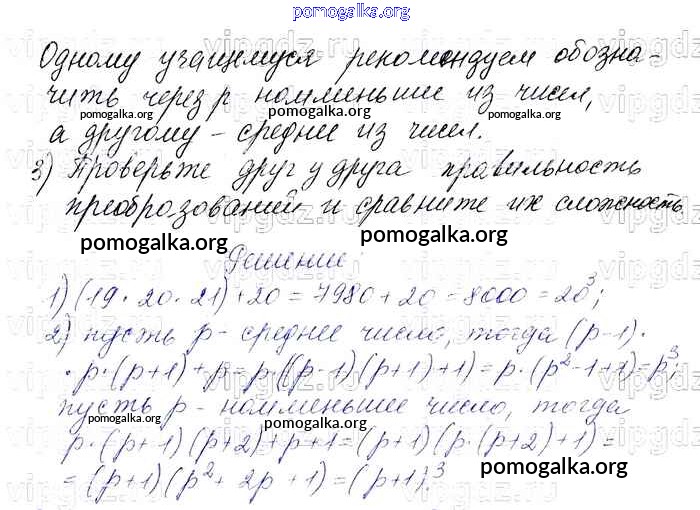 pomogalka.org
Одному учащемуся рекомендуем обозна-
чить через p наименьшее из чисел,
а другому – среднее из чисел.
3) Проверьте друг у друга правильность
преобразований и сравните их сложность
pomogalka.org
Решение:
1) (19 · 20 · 21) + 20 = 7980 + 20 = 8000 = 20³;
2) пусть p - среднее число, тогда (p-1) ·
· p · (p+1) + p = p · ((p-1)(p+1)+1) = p · (p²-1+1) = p³
пусть p - наименьшее число, тогда
p · (p+1)(p+2)+p+1 = (p+1)(p · (p+2)+1) =
= (p+1)(p² + 2p + 1) = (p+1)³
pomogalka.org